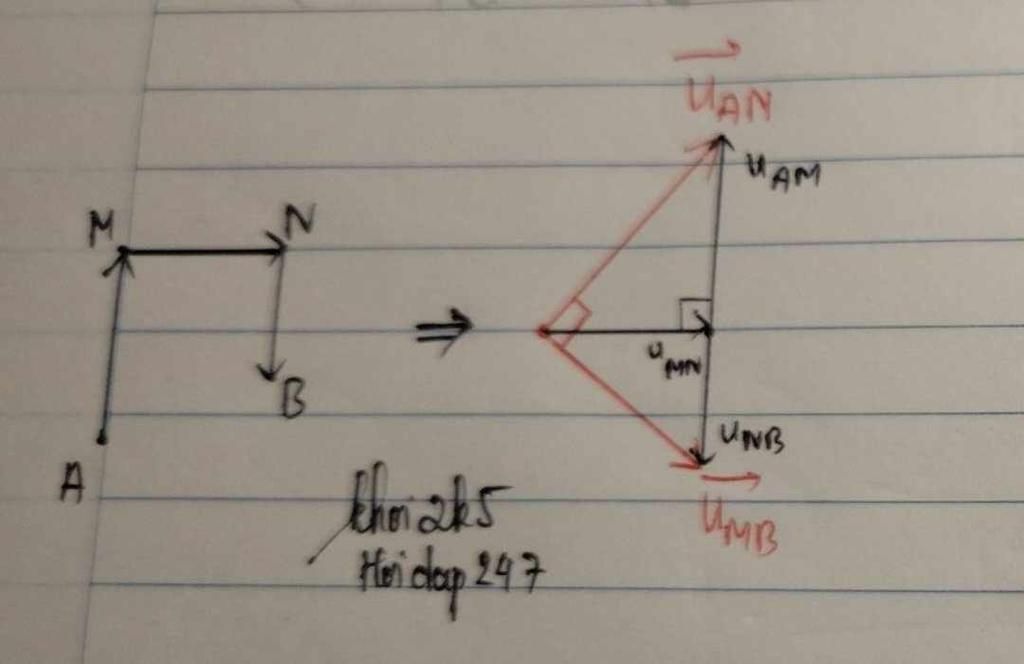 U_AN
U_AM
M
N
U_MN
B
U_NB
A
khoi2k5
U_MB
Hoidap247